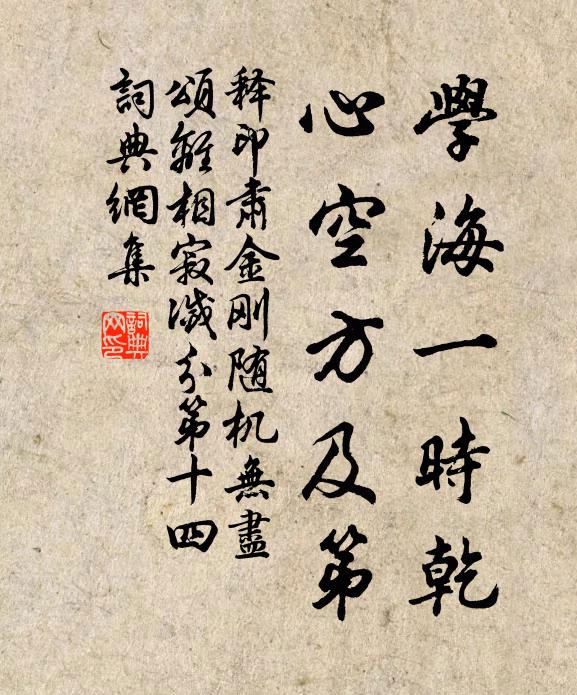 學海一時乾
心空方及第
释印肅金刚随机無盡
頌離相寂滅分第十四
詞典網集
詞典网印